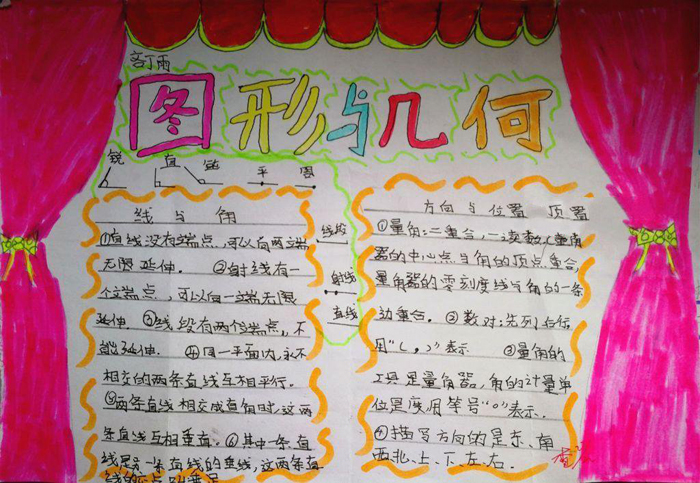 图形与几何
锐 直 钝 平 周
线与角
①直线没有端点,可以向两端
无限延伸. ②射线有一
个端点,可以向一端无限
延伸. ③线段有两个端点,不
能延伸. ④同一平面内,永不
相交的两条直线互相平行.
⑤两条直线相交成直角时,这两
条直线互相垂直. ⑥其中一条直
线是另一条直线的垂线,这两条直
线的交点叫垂足
线段
射线
直线
方向与位置 顶置
①量角:二重合,一读数(量角
器的中心点与角的顶点重合,
量角器的零刻度线与角的一条
边重合. ②数对:先列后行
用“( , )”表示 ③量角的
工具是量角器,角的计量单
位是度用符号“°”表示.
④描写方向的是东、南
西北、上、下、左、右.